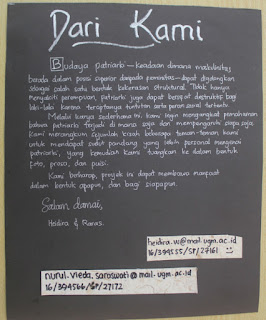 Dari Kami
Budaya patriarki — keadaan dimana maskulinitas
berada dalam posisi superior daripada feminitas — dapat digolongkan
sebagai salah satu bentuk kekerasan struktural. Tidak hanya
menyakiti perempuan, patriarki juga dapat bersifat destruktif bagi
laki-laki karena terciptanya tuntutan serta peran sosial tertentu.
Melalui karya sederhana ini, kami ingin mengangkat pemahaman
bahwa patriarki terjadi di mana saja dan mempengaruhi siapa saja.
Kami merangkum sejumlah kisah beberapa teman-teman kami
untuk mendapat sudut pandang yang lebih personal mengenai
patriarki, yang kemudian kami tuangkan ke dalam bentuk
foto, prosa, dan puisi.
Kami berharap, proyek ini dapat membawa manfaat
dalam bentuk apapun, dan bagi siapapun.
Salam damai,
Heidira & Raras.
heidira.w@mail.ugm.ac.id
16/394555/SP/27161 :)
nurul.vieda.saraswati@mail.ugm.ac.id
16/394566/SP/27172